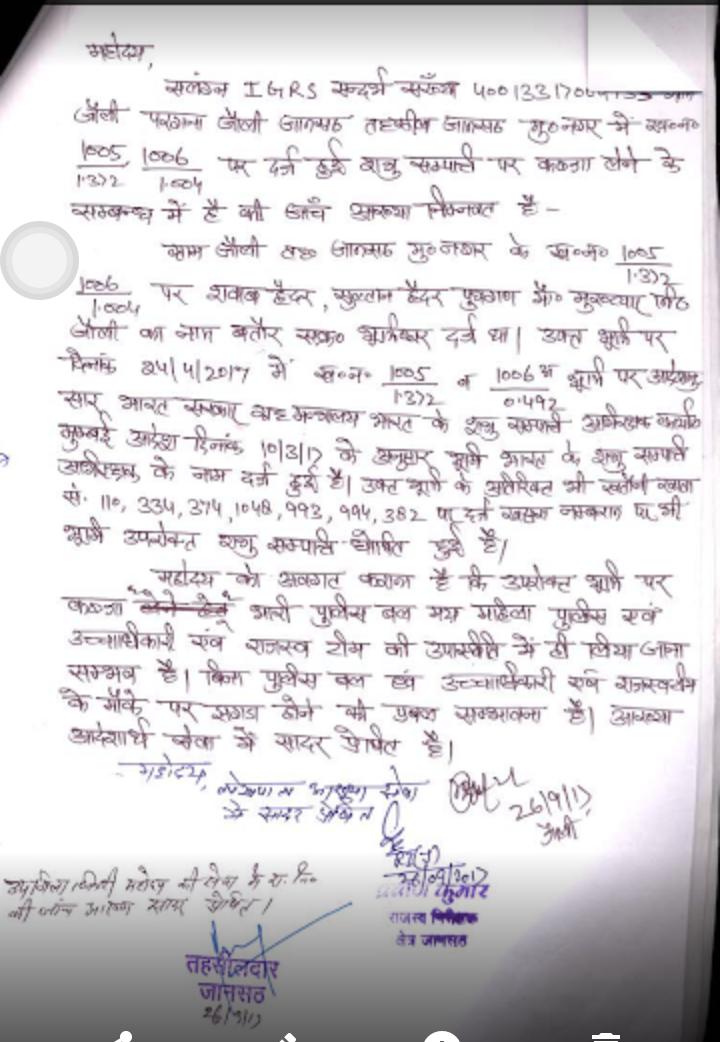 महोदय,
संलग्न IGRS सन्दर्भ संख्या
जौली परगना जौली जानसठ तहसील जानसठ मु०नगर में ख०न०
1005/1.372, 1006/1.004 पर दर्ज हुई शत्रु सम्पत्ति पर कब्जा लेने के
सम्बन्ध में है की जाँच आख्या निम्नवत है -
ग्राम जौली तह० जानसठ मु०नगर के ख०न० 1005/1.372
1006/1.004 पर हैदर, सुल्तान हैदर पुत्रगण नि०
जौली का नाम बतौर भूमिधर दर्ज था। उक्त भूमि पर
दिनांक 24/4/2017 में ख०न० 1005/1.372 व 1006/0.492 भूमि पर
सार भारत सरकार गृह मन्त्रालय भारत के शत्रु सम्पत्ति अभिरक्षक कार्यालय
मुम्बई आदेश दिनांक 10/3/17 के अनुसार भूमि भारत के शत्रु सम्पत्ति
अभिरक्षक के नाम दर्ज हुई है। उक्त भूमि के अतिरिक्त भी खतौनी खाता
सं. 110, 334, 374, 1048, 993, 994, 382 पर दर्ज खसरा नम्बरान पर भी
भूमि उपरोक्त शत्रु सम्पत्ति घोषित हुई है।
महोदय को अवगत कराना है कि उपरोक्त भूमि पर
कब्जा भारी पुलिस बल मय महिला पुलिस एवं
उच्चाधिकारी एवं राजस्व टीम की उपस्थिति में ही लिया जाना
सम्भव है। बिना पुलिस बल एवं उच्चाधिकारी एवं राजस्व टीम
के मौके पर झगडा होने की प्रबल सम्भावना है। आख्या
आदेशार्थ सेवा में सादर प्रेषित है।
महोदय,
लेखपाल आख्या सेवा
में सादर प्रेषित
26/9/17
जौली
26/09/2017
प्रवीण कुमार
राजस्व निरीक्षक
क्षेत्र जानसठ
उपजिलाधिकारी महोदय की सेवा में रा.नि०
की जाँच आख्या सादर प्रेषित।
तहसीलदार
जानसठ
26/9/17